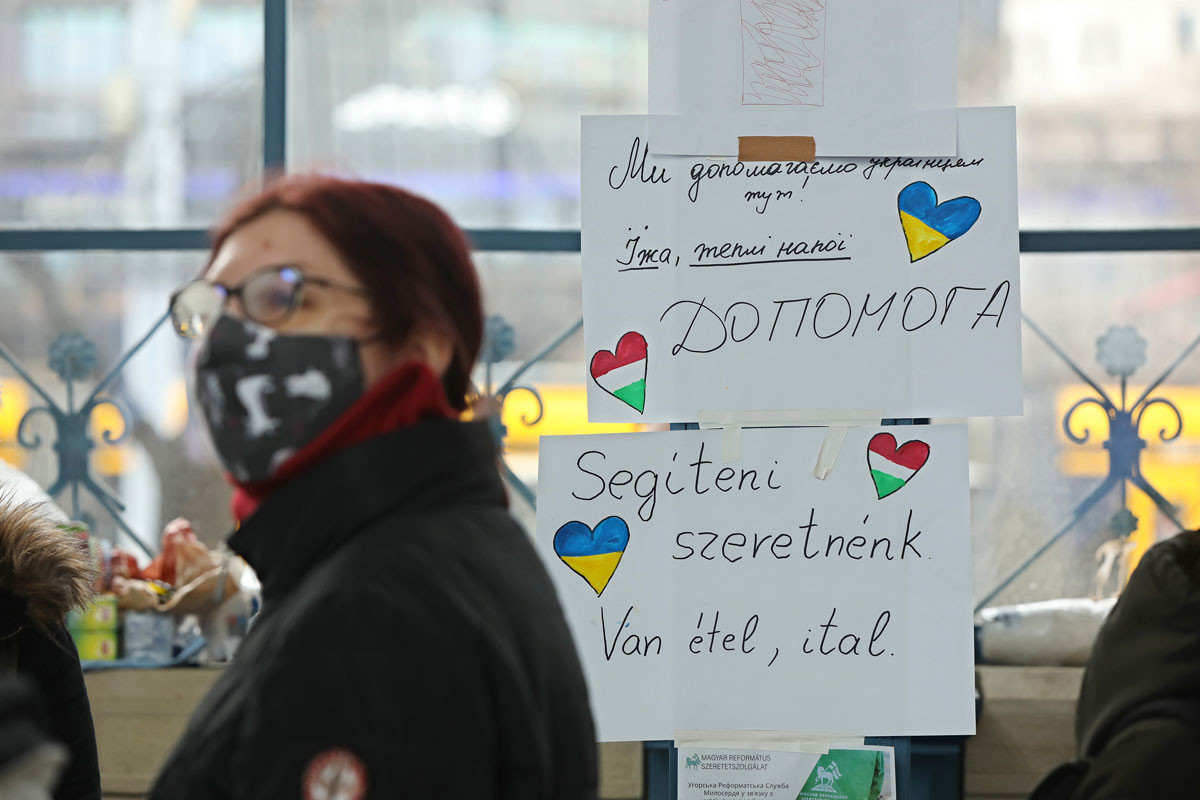 Ми допомагаємо українцям
тут!
Їжа, теплі напої
ДОПОМОГА
Segíteni
szeretnénk.
Van étel, ital.
MAGYAR REFORMÁTUS
SZERETETSZOLGÁLAT
Угорська Реформатська Служба
Милосердя у зв'язку з